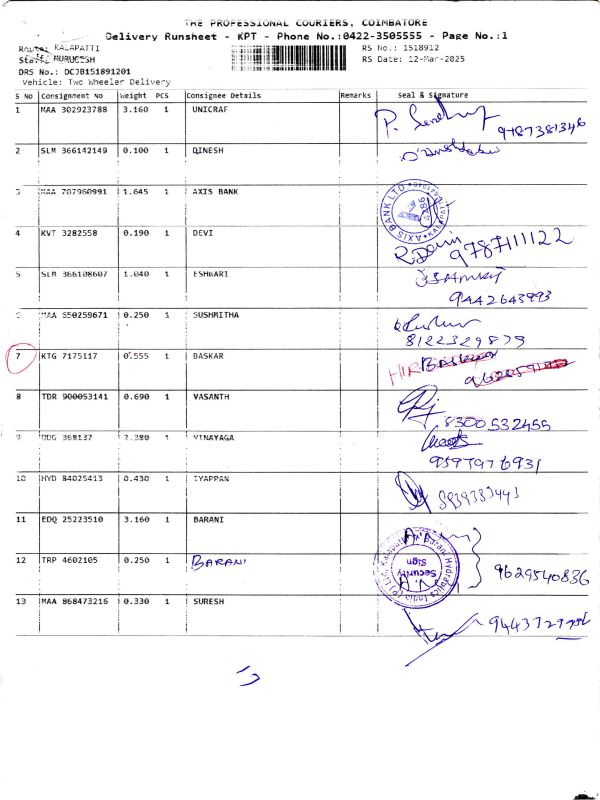 THE PROFESSIONAL COURIERS, COIMBATORE
Delivery Runsheet - KPT - Phone No.:0422-3505555 - Page No.:1
Route: KALAPATTI RS No.: 1518912
Staff: MURUGESH RS Date: 12-Mar-2025
DRS No.: DCJB151891201
Vehicle: Two Wheeler Delivery
S No Consignment No Weight PCS Consignee Details Remarks Seal & Signature
1 MAA 302923788 3.160 1 UNICRAF 9787381346
2 SLM 366142149 0.100 1 QINESH
3 MAA 707960991 1.645 1 AXIS BANK AXIS BANK LTD
4 KVT 3282558 0.190 1 DEVI 9787111122
5 SLM 366108607 1.040 1 ESHWARI 9442643993
6 MAA 550259671 0.250 1 SUSHMITHA 8122329879
7 KTG 7175117 0.555 1 BASKAR
8 TDR 900053141 0.690 1 VASANTH 8300532455
9 368137 2.380 1 VINAYAGA 9597976931
10 HYD 84025413 0.430 1 IYAPPAN
11 EDQ 25223510 3.160 1 BARANI
12 TRP 4602105 0.250 1 BARANI Security Sign 9629540836
13 MAA 868473216 0.330 1 SURESH